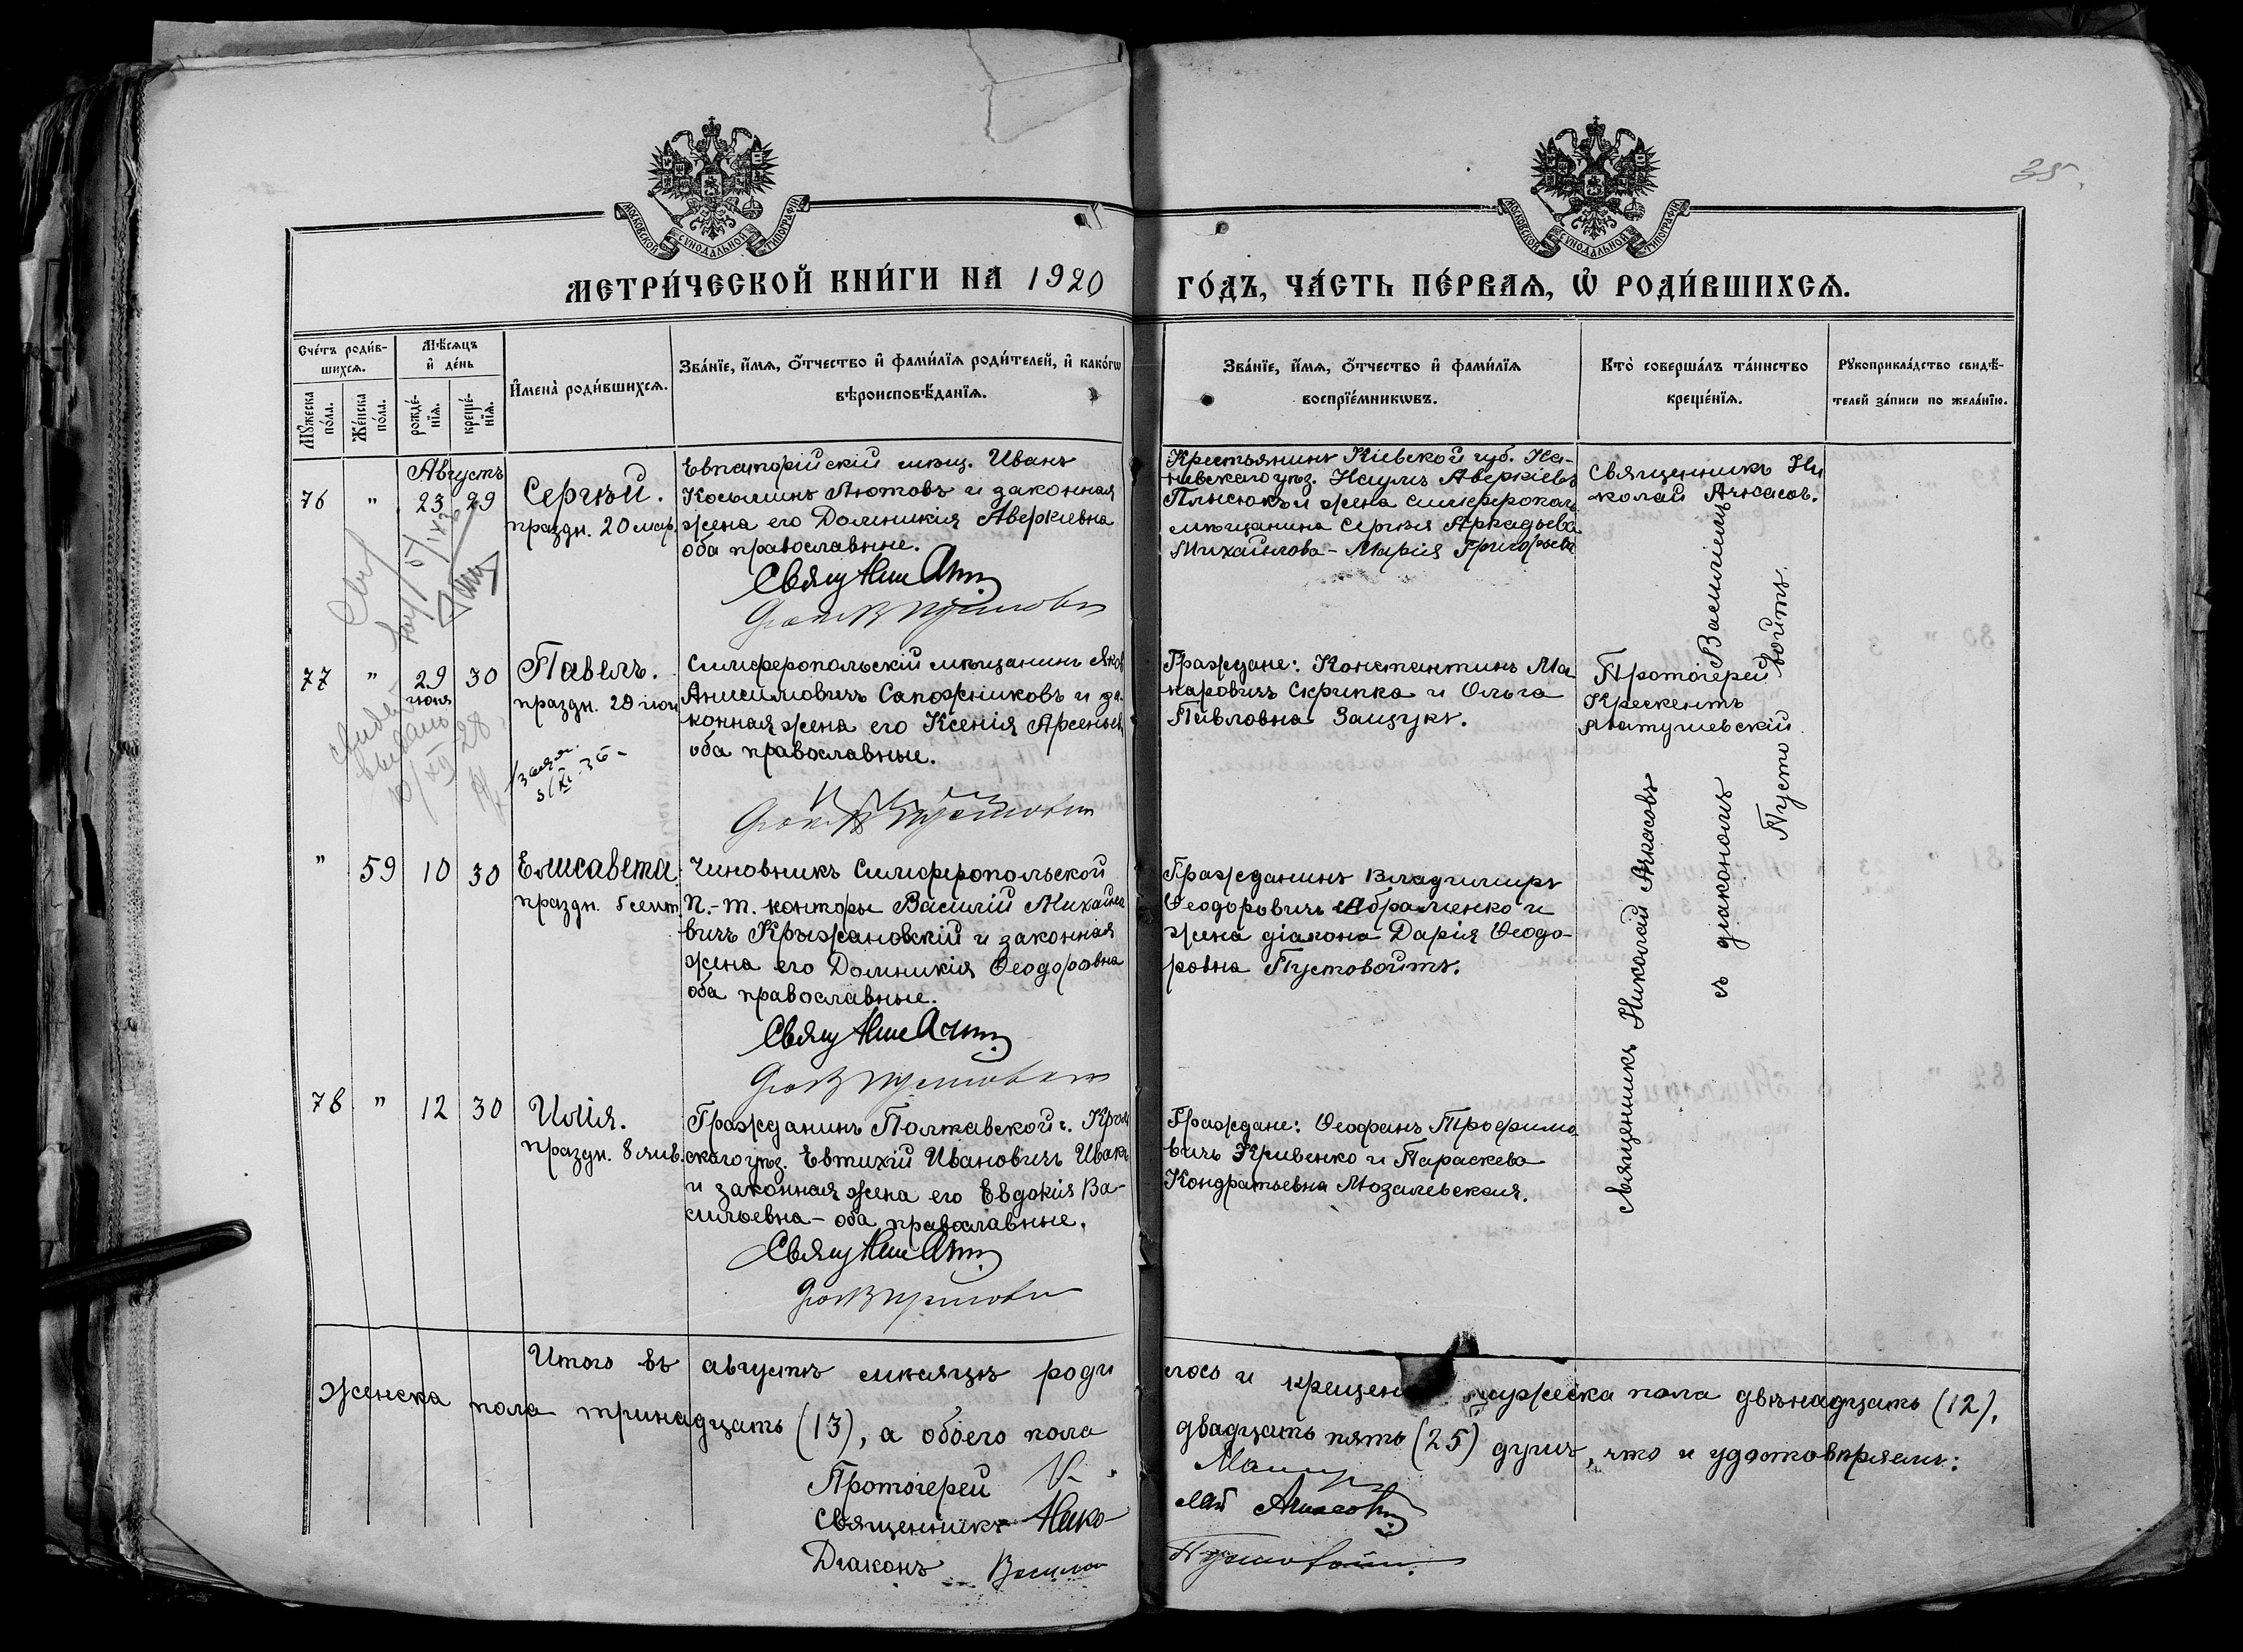 35.
МОСКОВСКОЙ СУНОДАЛЬНОЙ ТИПОГРАФІИ
МОСКОВСКОЙ СУНОДАЛЬНОЙ ТИПОГРАФІИ
МЕТРИ́ЧЕСКОЙ КНИ́ГИ НА 1920
ГО́ДЪ, ЧА́СТЬ ПЕ́РВАѦ, Ѡ҆ РОДИ́ВШИХСѦ.
Сче́тъ роди́в-
шихсѧ.
Мѣ́сѧцъ
и҆ де́нь
Мꙋ́жеска
по́ла.
Же́нска
по́ла.
рожде́-
нїѧ.
креще́-
нїѧ.
И҆мена̀ роди́вшихсѧ.
Зва́нїе, и҆́мѧ, ѻ҆́тчество и҆ фами́лїѧ роди́телей, и҆ како́гѡ
вѣроисповѣ́данїѧ.
Зва́нїе, и҆́мѧ, ѻ҆́тчество и҆ фами́лїѧ
воспрїе́мникѡвъ.
Кто̀ соверша́лъ та́инство
креще́нїѧ.
Рꙋкоприкла́дство свидѣ́-
телей за́писи по жела́нїю.
Августъ
76 " 23 29
Сергѣй.
праздн. 20 мар.
Евпаторійскій мѣщ. Иванъ
Косьминъ Лютовъ и законная
жена его Домникія Аверкіевна
оба православные.
Крестьянинъ Кіевской губ. Ка-
невскаго уѣз. Наумъ Аверкіевъ
Плысюкъ и жена симферопол.
мѣщанина Сергѣя Аркадьева
Михайлова - Марія Григорьева
Священникъ Ни
колай Ачкасов.
77 " 29 30
іюня
Павелъ.
праздн. 29 іюн
Симферопольскій мѣщанинъ Яков
Анисимовичъ Сапожниковъ и за-
конная жена его Ксенія Арсеньев
оба православные.
Граждане: Константинъ Ма
каровичъ Скрипка и Ольга
Павловна Защукъ.
Протоіерей
Крескентъ
Матушевскій
" 59 10 30
Елисавета.
праздн. 5 сент.
Чиновникъ Симферопольской
П.-т. конторы Василій Михайло
вичъ Крыжановскій и законная
жена его Домникія Ѳеодоровна
оба православные.
Гражданинъ Владимиръ
Ѳеодоровичъ Абраменко и
жена діакона Дарія Ѳеодо-
ровна Пустовойтъ.
Священникъ Николай Ачкасовъ
съ діакономъ Василіемъ
Пустовойтъ.
78 " 12 30
Илія.
праздн. 8 янв.
Гражданинъ Полтавской г.
скаго уѣз. Евтихій Ивановичъ
и законная жена его Евдокія Ва-
сильевна - оба православные.
Граждане: Ѳеофанъ Трофимо
вичъ Кривенко и Параскева
Кондратьевна Мозалевская.
Итого въ августѣ мѣсяцѣ роди
лось и крещен мужеска пола двѣнадцать (12),
женска пола тринадцать (13), а обоего пола
двадцать пять (25) душъ, что и удостовѣряемъ:
Протоіерей
Священникъ Нико-
лай Ачкасовъ
Діаконъ Василій
Пустовойт.